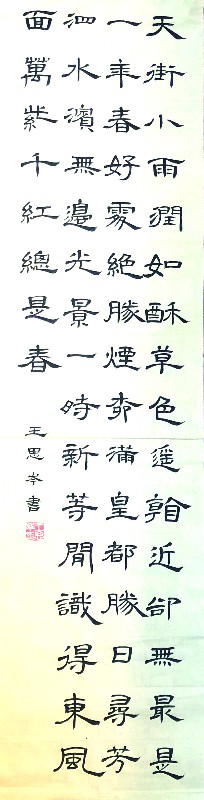 天街小雨潤如酥草色遥看近卻無最是
一年春好處絕勝煙柳滿皇都勝日尋芳
泗水濱無邊光景一時新等閒識得東風
面萬紫千紅總是春
王思岑書